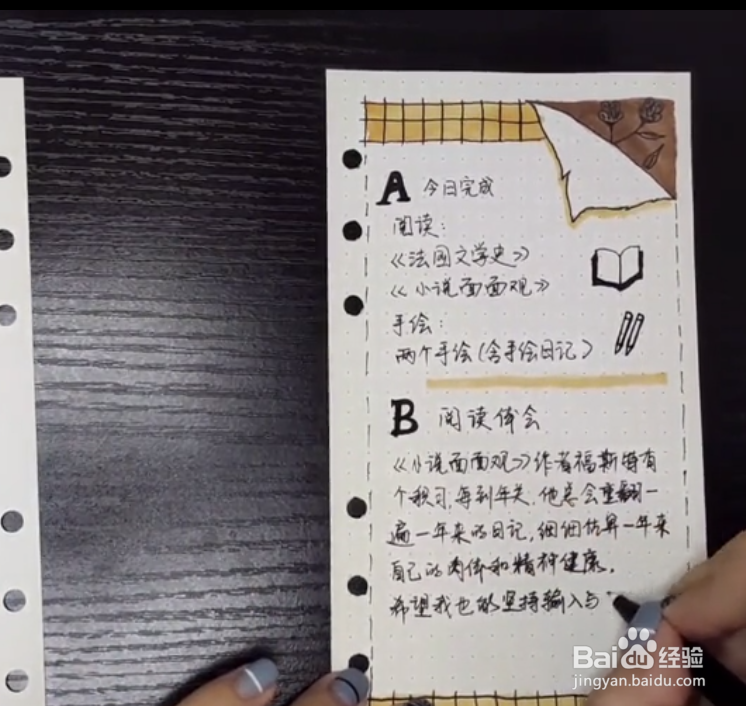 A 今日完成
阅读：
《法国文学史》
《小说面面观》
手绘：
两个手绘（含手绘日记）
B 阅读体会
《小说面面观》作者福斯特有
个积习，每到年关，他总会重翻一
遍一年来的日记，细细估算一年来
自己的肉体和精神健康。
希望我也能坚持输入与
Baidu 经验
jingyan.baidu.com